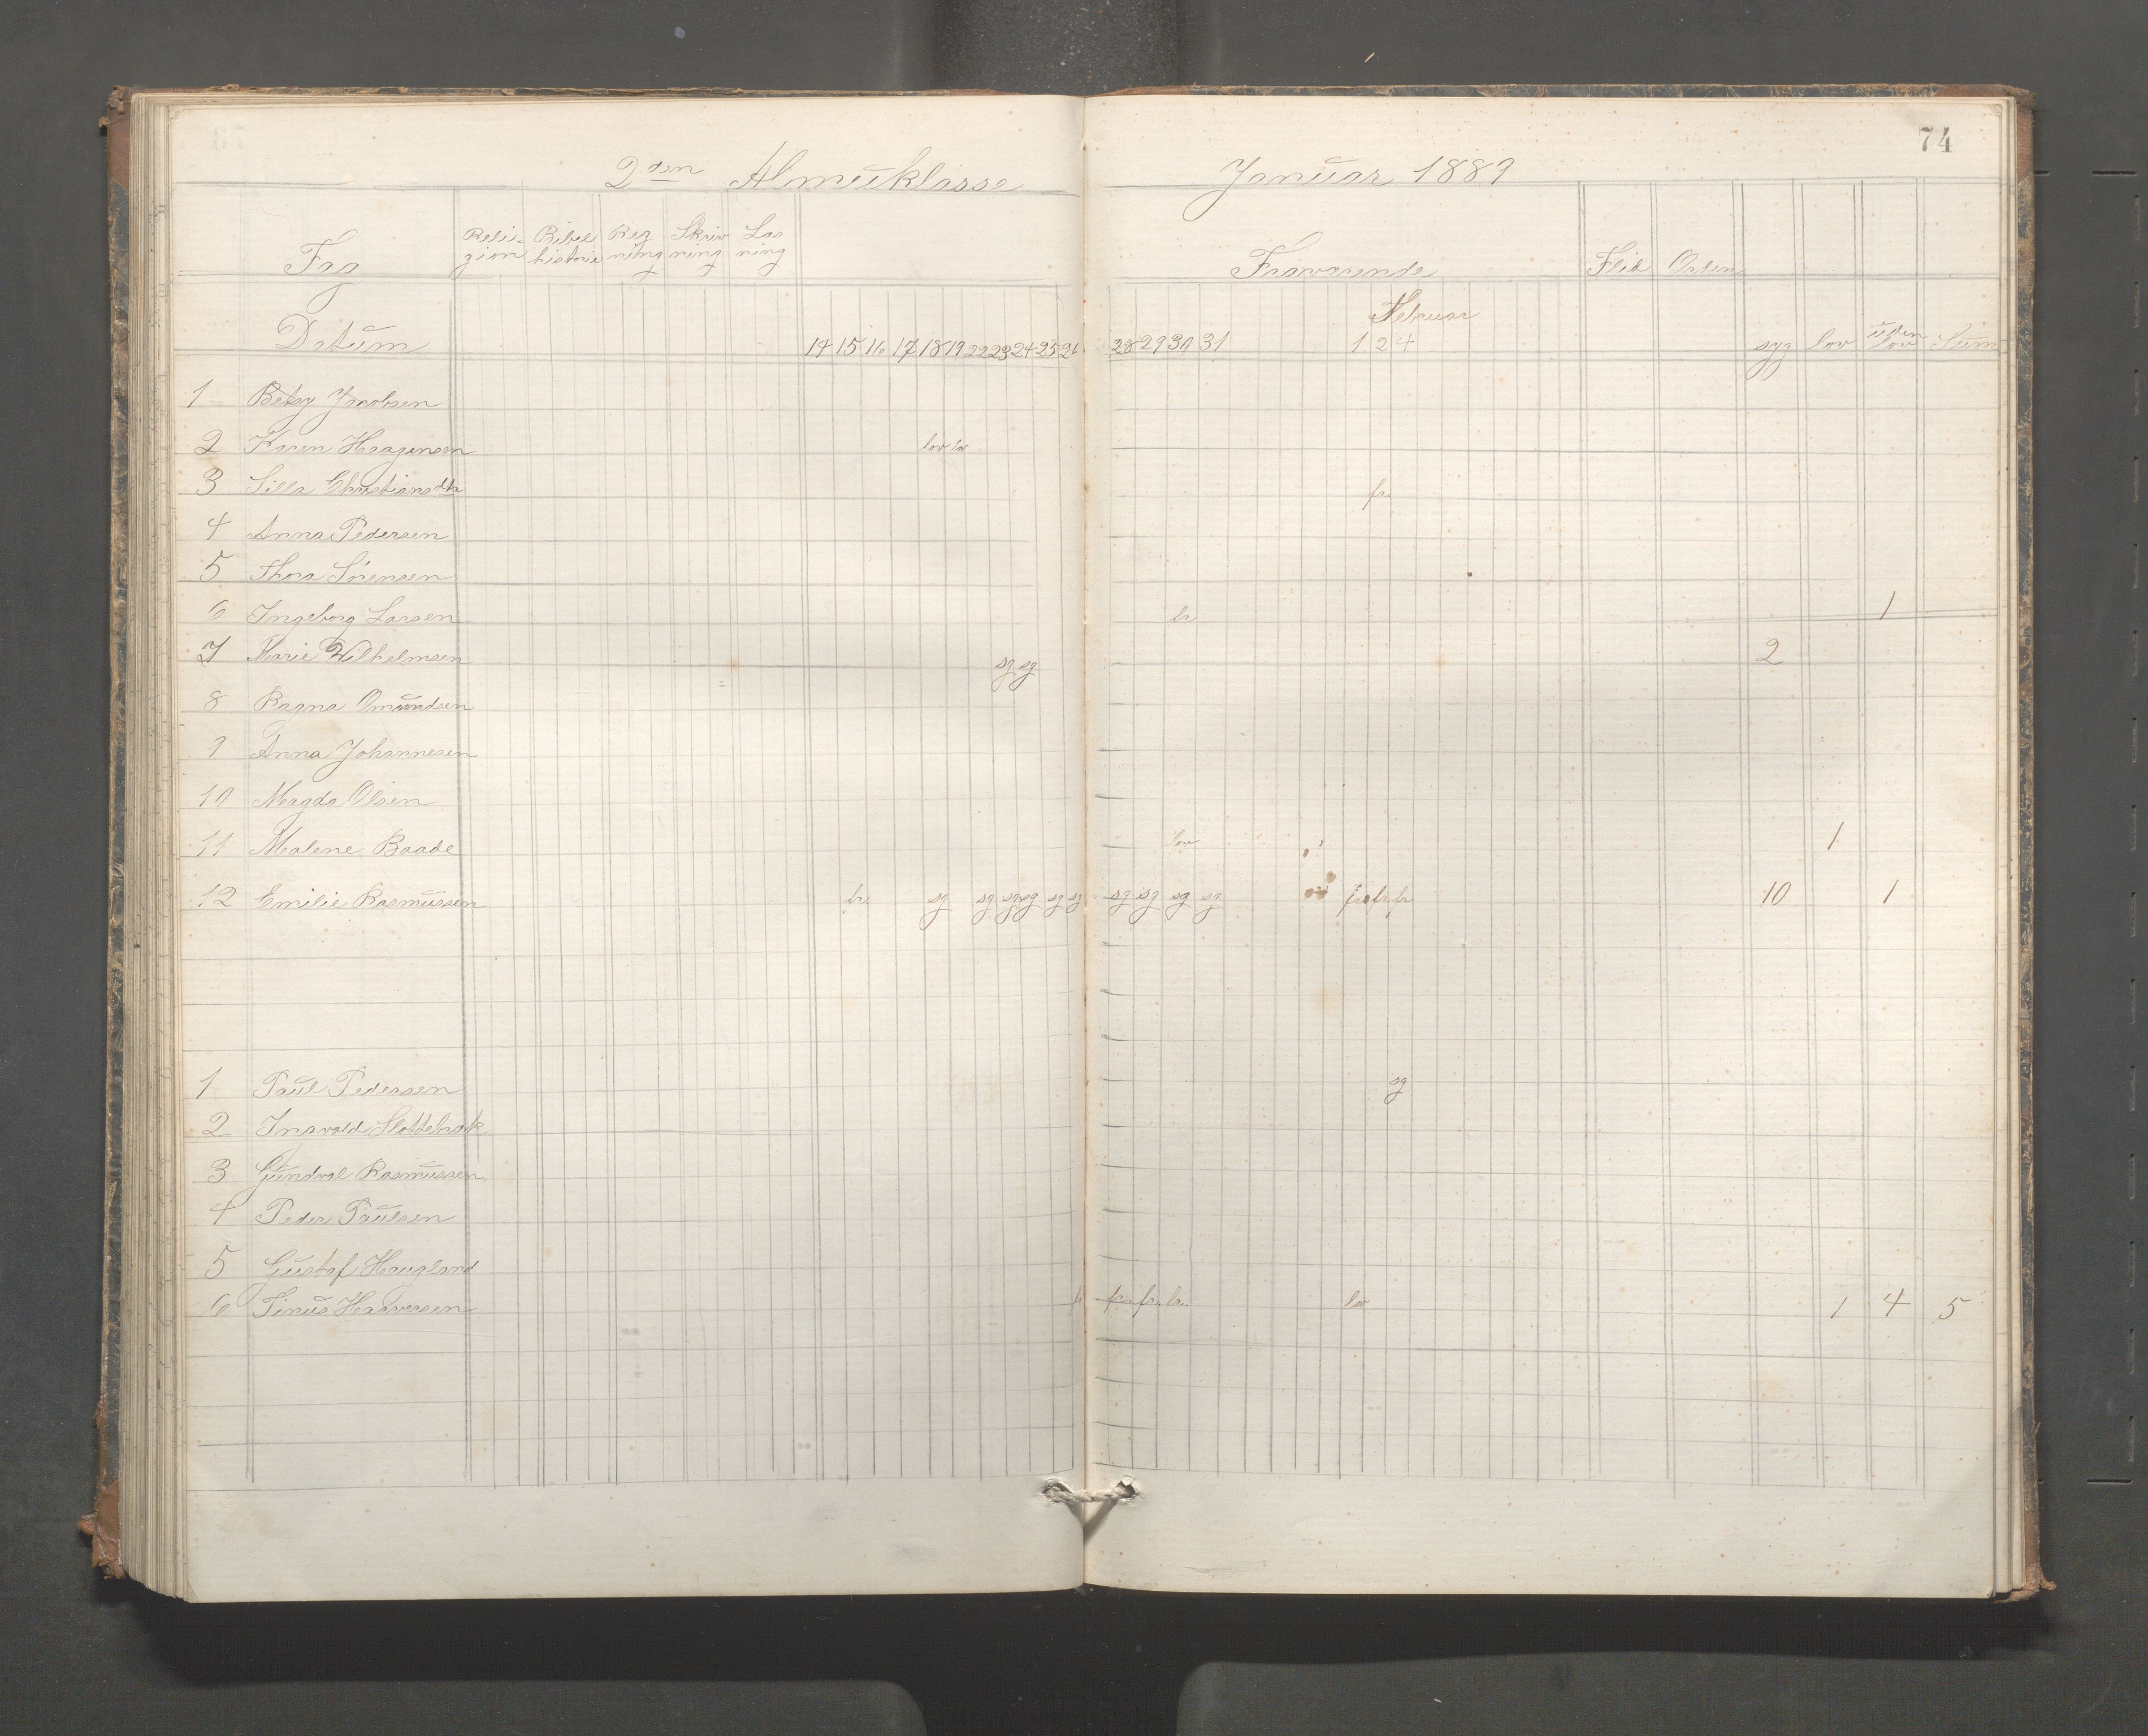 74
2den Almueklasse Januar 1889
Fag Reli-gion Bibel historie Reg ning Skriv ning Læs ning Fraværende Flid Orden
Februar
Datum 14 15 16 17 18 19 22 23 24 25 26 28 29 30 31 1 2 4 syg lov uden lov Sum
1 Betsy Jacobsen
2 Karen Haagensen lov lov
3 Silla Christiansdtr fr.
4 Anna Pedersen
5 Thora Sörensen
6 Ingeborg Larsen fr 1
7 Marie Wilhelmsen sg sg 2
8 Ragna Omundsen
9 Anna Johannesen
10 Magda Olsen
11 Malene Baade lov 1
12 Emilie Rasmussen fr. sg sg sg sg sg sg sg sg sg sg fr fr fr 10 1
1 Paul Pedersen sg
2 Ingvald Slottebrak
3 Gundval Rasmussen
4 Peder Paulsen
5 Gustaf Haugland
6 Sinus Haaversen fr. fr. fr. lov 1 4 5